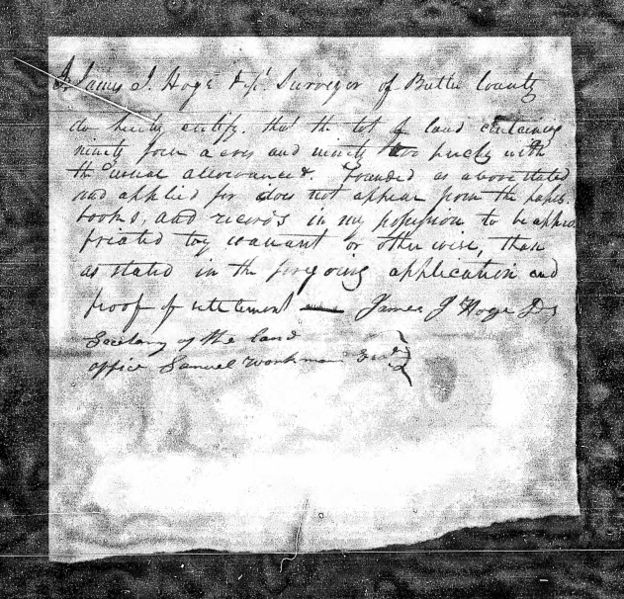 I James J. Hoge Depy. Surveyor of Butler County
do hereby certify. that the lot of land containing
ninety four acres and ninety two perches with
the usual allowance &. bounded as above stated
and applied for does not appear from the papers.
books, and records in my possession to be appro
priated by warrant or otherwise, than
as stated in the foregoing application and
proof of settlement — James J Hoge DS
Secretary of the land
office Samuel Workman Esqr